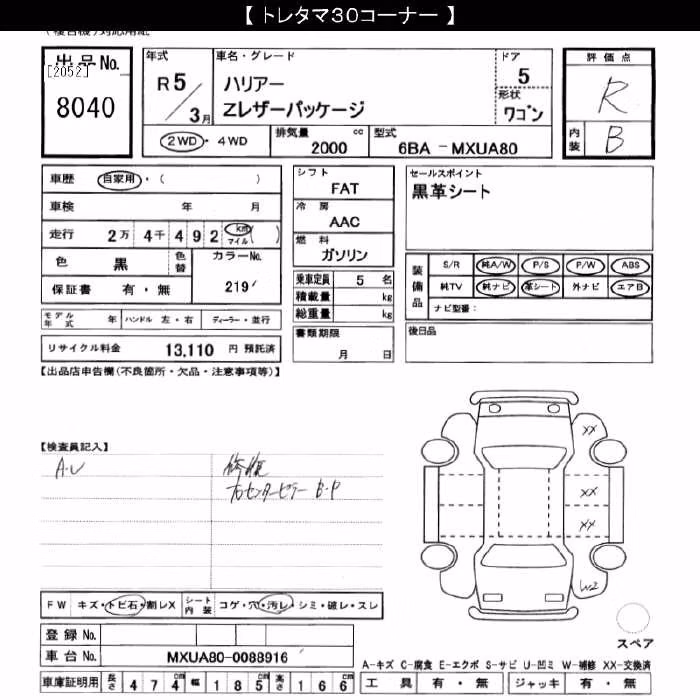 【 トレタマ30コーナー 】
出品No.
[2052]
8040
年式
R5/3月
車名・グレード
ハリアー
Zレザーパッケージ
ドア
5
形状
ワゴン
2WD・4WD
排気量 cc
2000
型式
6BA-MXUA80
評価点
R
内装
B
車歴 自家用・( )
車検 年 月
走行 2万 4千 4 9 2 km マイル ( )
色 黒
色替
カラーNo.
219
保証書 有・無
モデル年式 年
ハンドル 左・右
ディーラー・並行
リサイクル料金 13,110 円 預託済
シフト
FAT
冷房
AAC
燃料
ガソリン
乗車定員 5 名
積載量 kg
総重量 kg
書類期限
月 日
セールスポイント
黒革シート
装備品
S/R 純A/W P/S P/W ABS
純TV 純ナビ 革シート 外ナビ エアB
ナビ型番:
後日品
【出品店申告欄(不良箇所・欠品・注意事項等)】
【検査員記入】
A・U
修復
右センターピラー B・P
XX
XX
XX
W2
FW キズ・トビ石・割レX
シート内装 コゲ・穴・汚レ・シミ・破レ・スレ
登録 No.
車台 No. MXUA80-0088916
車庫証明用 長さ 474cm 幅 185cm 高さ 166cm
スペア
A-キズ C-腐食 E-エクボ S-サビ U-凹ミ W-補修 XX-交換済
工具 有・無 ジャッキ 有・無